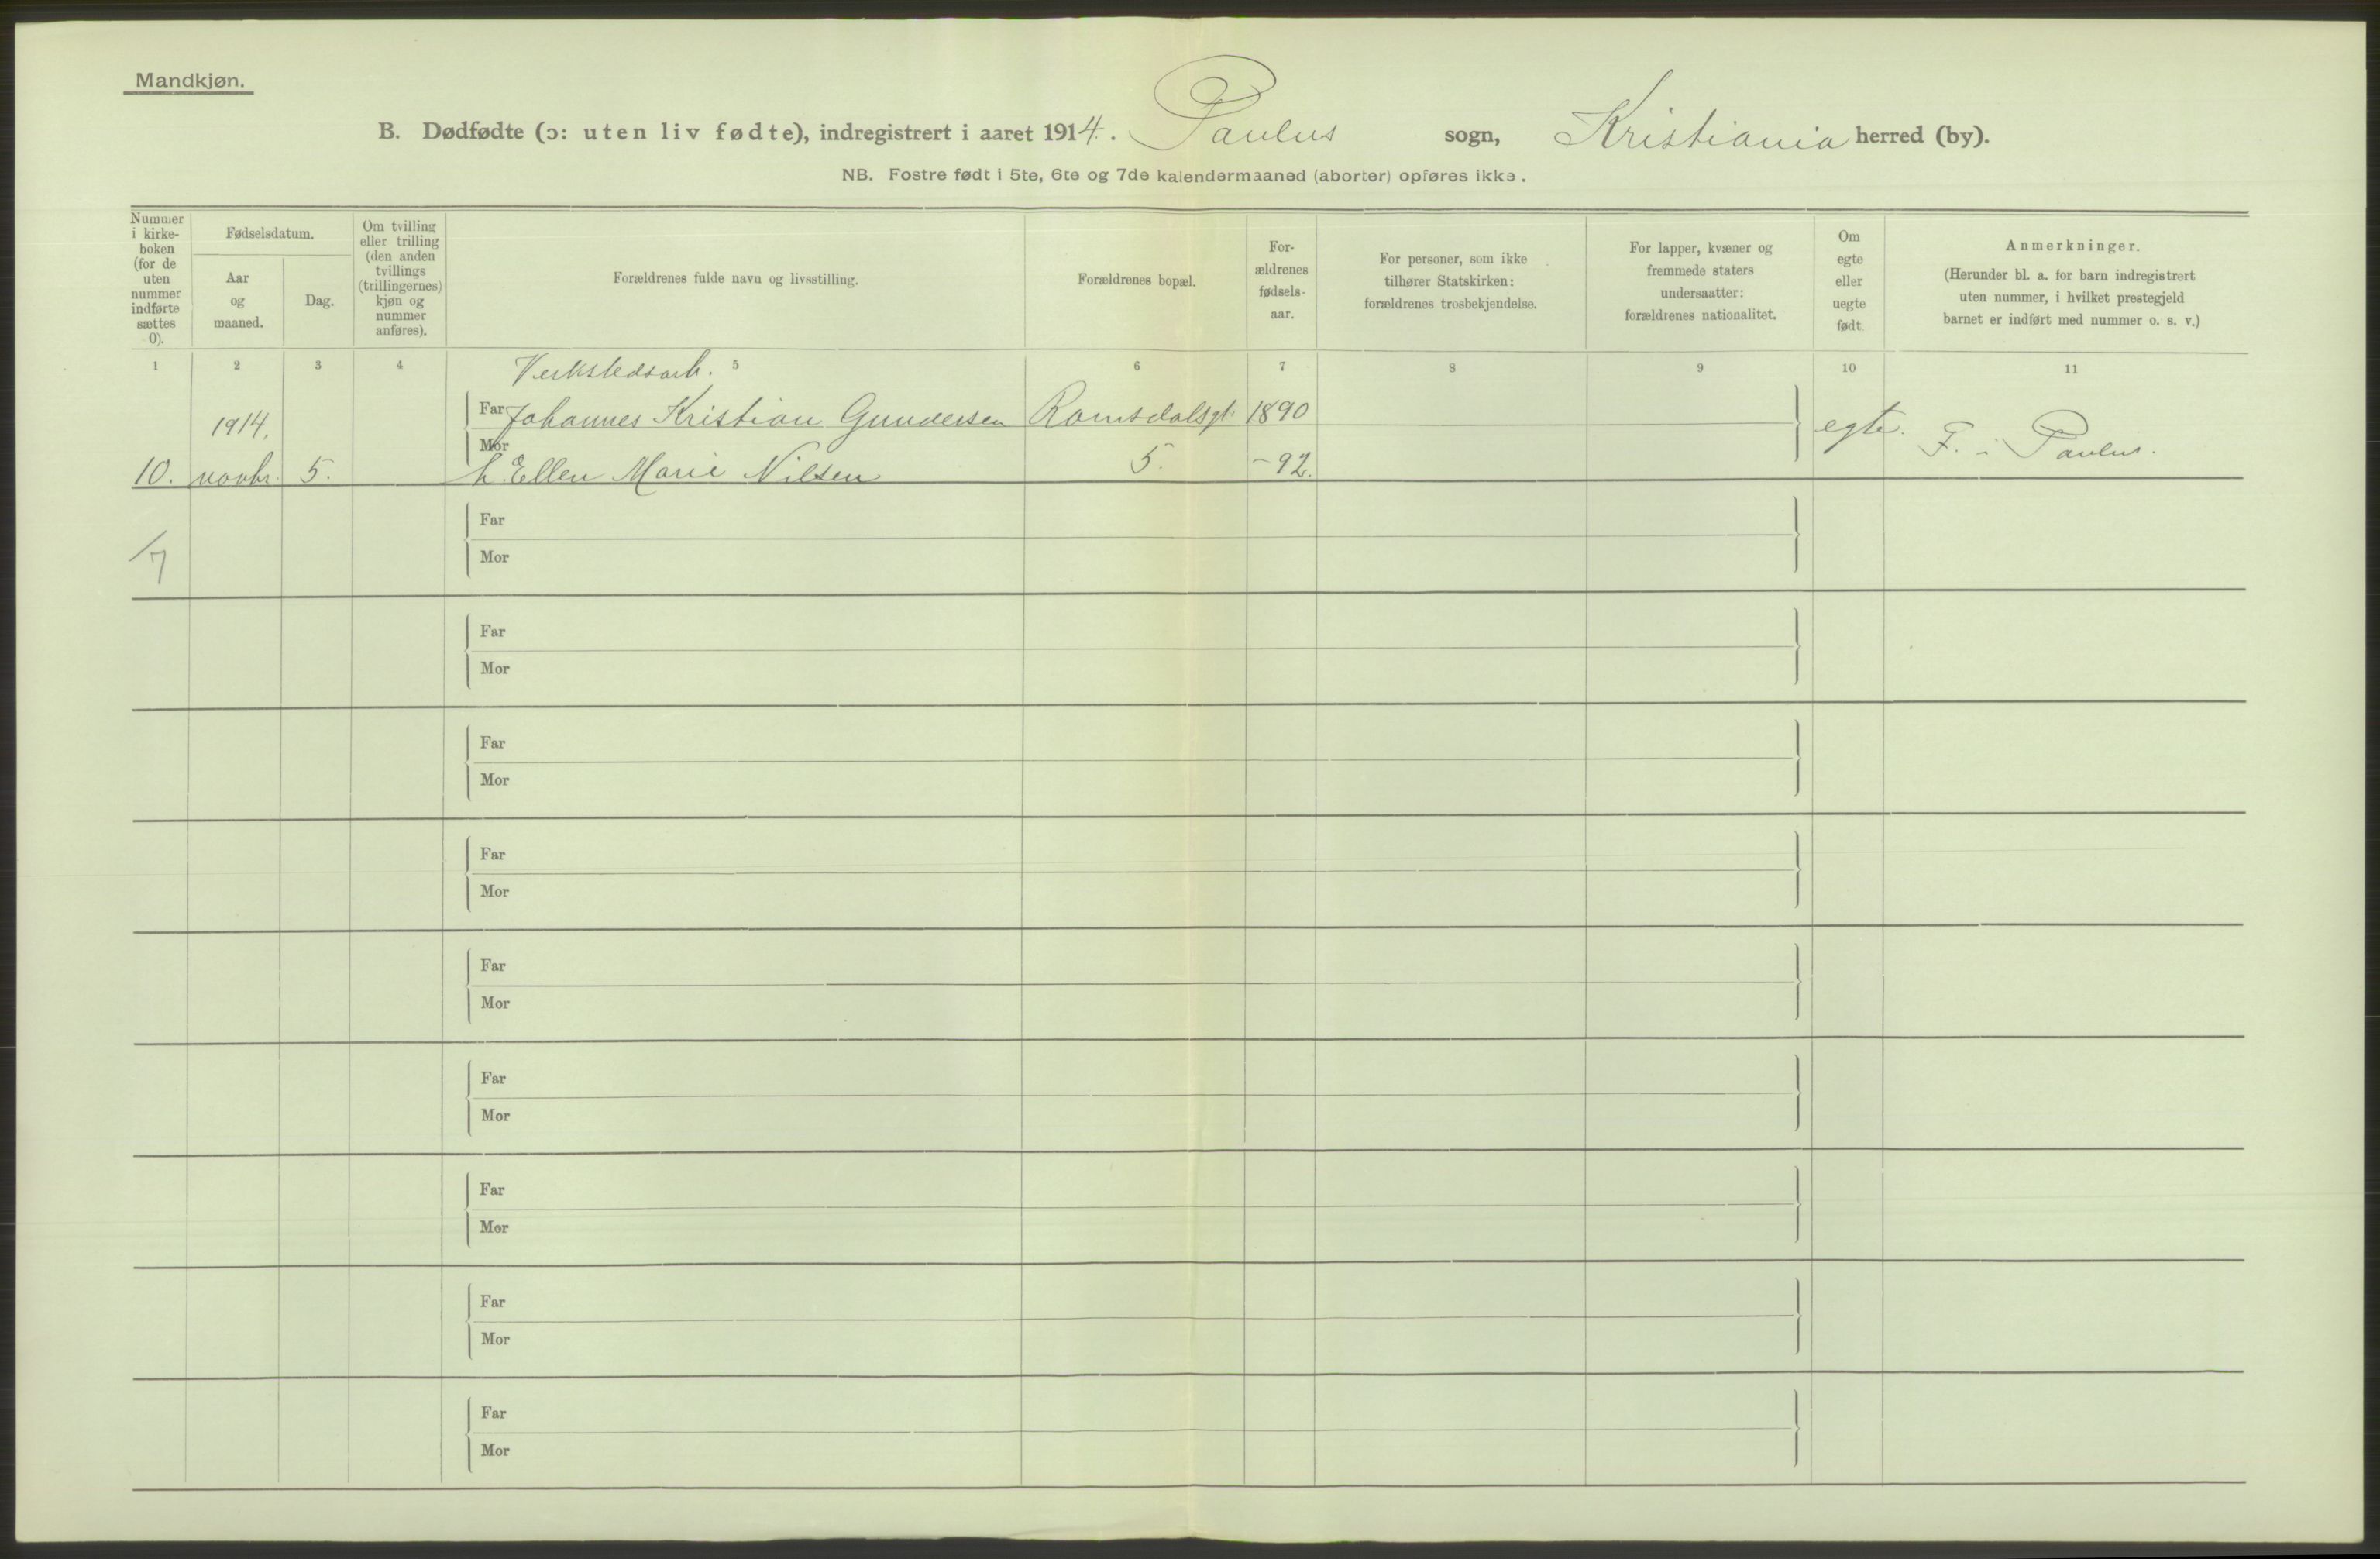 Mandkjøn.
B. Dødfødte (ɔ: uten liv fødte), indregistrert i aaret 1914. Paulus sogn, Kristiania herred (by).
NB. Fostre født i 5te, 6te og 7de kalendermaaned (aborter) opføres ikke.
Nummer i kirke-boken (for de uten nummer indførte sættes 0).
Fødselsdatum.
Aar og maaned.
Dag.
Om tvilling eller trilling (den anden tvillings (trillingernes) kjøn og nummer anføres).
Forældrenes fulde navn og livsstilling.
Forældrenes bopæl.
For-ældrenes fødsels-aar.
For personer, som ikke tilhører Statskirken: forældrenes trosbekjendelse.
For lapper, kvæner og fremmede staters undersaatter: forældrenes nationalitet.
Om egte eller uegte født.
Anmerkninger.
(Herunder bl. a. for barn indregistrert uten nummer, i hvilket prestegjeld barnet er indført med nummer o. s. v.)
1 2 3 4 5 6 7 8 9 10 11
Verkstedsarb.
1914. Far Johannes Kristian Gundersen Romsdalsgt. 1890 egte. F. i Paulus.
Mor
10. novbr. 5. h. Ellen Marie Nilsen 5. -92.
Far
/7
Mor
Far
Mor
Far
Mor
Far
Mor
Far
Mor
Far
Mor
Far
Mor
Far
Mor
Far
Mor